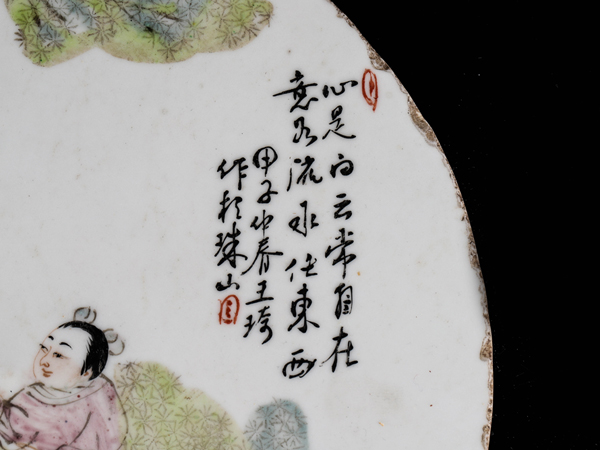 心是白云常自在
意若流水任東西
甲子仲春王琦
作於珠山